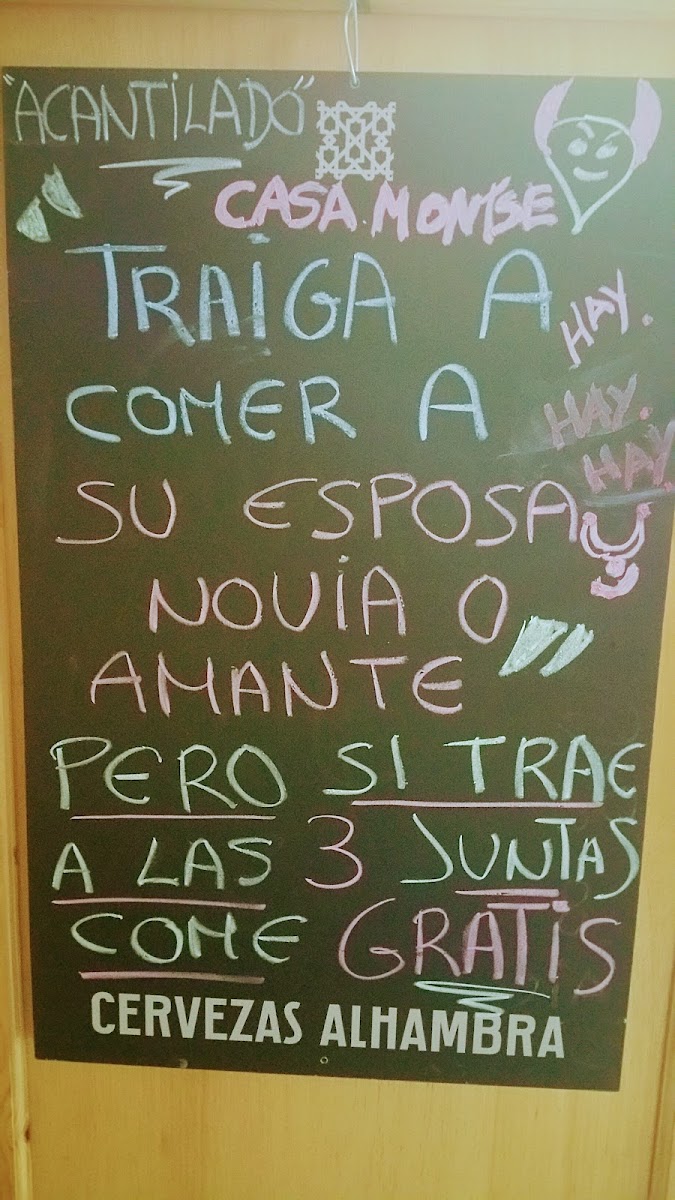 "ACANTILADO"
CASA MONTSE
TRAIGA A
HAY.
COMER A
HAY.
HAY
SU ESPOSA
NOVIA O
AMANTE
PERO SI TRAE
A LAS 3 JUNTAS
COME GRATIS
CERVEZAS ALHAMBRA